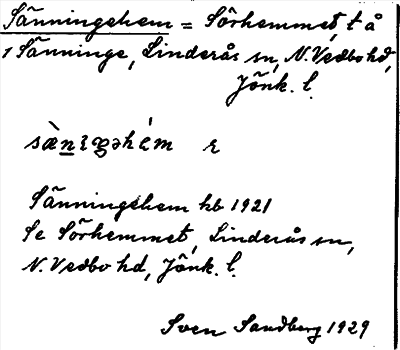 Sänningehem = Sörhemmet, t å
1 Sänninge, Linderås sn, N. Vedbo hd,
Jönk. l.
sæ̀nıŋəhém r
Sänningehem kb 1921
Se Sörhemmet, Linderås sn,
N. Vedbo hd, Jönk. l.
Sven Sandberg 1929